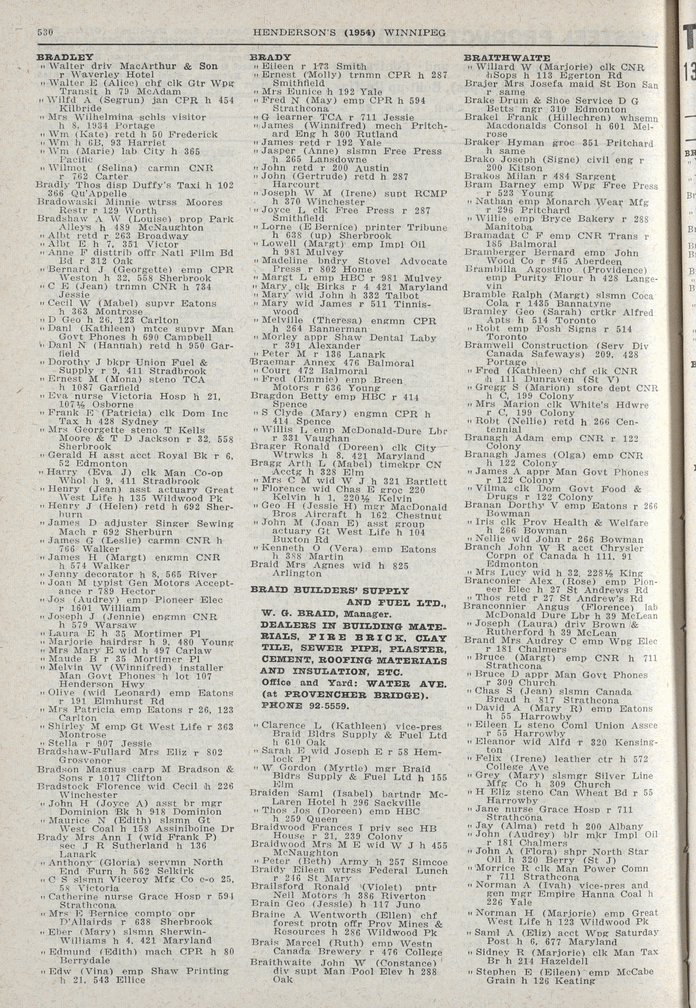 530
HENDERSON'S (1954) WINNIPEG
BRADLEY
" Walter driv MacArthur & Son
r Waverley Hotel
" Walter E (Alice) chf clk Gtr Wpg
Transit h 79 McAdam
" Wilfd A (Segrun) jan CPR h 454
Kilbride
" Mrs Wilhelmina schls visitor
h 8, 1934 Portage
" Wm (Kate) retd h 50 Frederick
" Wm h 6B, 93 Harriet
" Wm (Marie) lab City h 365
Pacific
" Wilmot (Selina) carmn CNR
r 762 Carter
Bradly Thos disp Duffy's Taxi h 102
366 Qu'Appelle
Bradowaski Minnie wtrss Moores
Restr r 129 Worth
Bradshaw A W (Louise) prop Park
Alleys h 489 McNaughton
" Albt retd r 263 Broadway
" Albt E h 7, 351 Victor
" Anne F distrib offr Natl Film Bd
Bd r 312 Oak
" Bernard J (Georgette) emp CPR
Weston h 32, 558 Sherbrook
" C E (Jean) trnmn CNR h 734
Jessie
" Cecil W (Mabel) supvr Eatons
h 363 Montrose
" D Geo h 26, 123 Carlton
" Danl (Kathleen) mtce supvr Man
Govt Phones h 690 Campbell
" Danl N (Hannah) retd h 950 Gar-
field
" Dorothy J bkpr Union Fuel &
Supply r 9, 411 Stradbrook
" Ernest M (Mona) steno TCA
h 1087 Garfield
" Eva nurse Victoria Hosp h 21,
107½ Osborne
" Frank E (Patricia) clk Dom Inc
Tax h 428 Sydney
" Mrs Georgette steno T Kells
Moore & T D Jackson r 32, 558
Sherbrook
" Gerald H asst acct Royal Bk r 6,
52 Edmonton
" Harry (Eva J) clk Man Co-op
Whol h 9, 411 Stradbrook
" Henry (Jean) asst actuary Great
West Life h 135 Wildwood Pk
" Henry J (Helen) retd h 692 Sher-
burn
" James D adjuster Singer Sewing
Mach r 692 Sherburn
" James G (Leslie) carmn CNR h
766 Walker
" James H (Margt) engmn CNR
h 574 Walker
" Jenny decorator h 8, 565 River
" Joan M typist Gen Motors Accept-
ance r 789 Hector
" Jos (Audrey) emp Pioneer Elec
r 1601 William
" Joseph J (Jennie) engmn CNR
h 579 Warsaw
" Laura E h 35 Mortimer Pl
" Marjorie hairdrsr h 9, 480 Young
" Mrs Mary E wid h 497 Carlaw
" Maude B r 35 Mortimer Pl
" Melvin W (Winnifred) installer
Man Govt Phones h lot 107
Henderson Hwy
" Olive (wid Leonard) emp Eatons
r 191 Elmhurst Rd
" Mrs Patricia emp Eatons r 26, 123
Carlton
" Shirley M emp Gt West Life r 363
Montrose
" Stella r 907 Jessie
Bradshaw-Fullard Mrs Eliz r 802
Grosvenor
Bradson Magnus carp M Bradson &
Sons r 1017 Clifton
Bradstock Florence wid Cecil h 226
Winchester
" John H (Joyce A) asst br mgr
Dominion Bk h 918 Dominion
" Maurice N (Edith) slsmn Gt
West Coal h 158 Assiniboine Dr
Brady Mrs Ann I (wid Frank P)
sec J R Sutherland h 136
Lanark
" Anthony (Gloria) servmn North
End Furn h 562 Selkirk
" C S slsmn Viceroy Mfg Co c-o 25,
58 Victoria
" Catherine nurse Grace Hosp r 594
Strathcona
" Mrs E Bernice compto opr
D'Allairds r 638 Sherbrook
" Eber (Mary) slsmn Sherwin-
Williams h 4, 421 Maryland
" Edmund (Edith) mach CPR h 80
Berrydale
" Edw (Vina) emp Shaw Printing
h 21, 543 Ellice
BRADY
" Eileen r 173 Smith
" Ernest (Molly) trnmn CPR h 287
Smithfield
" Mrs Eunice h 192 Yale
" Fred N (May) emp CPR h 594
Strathcona
" G learner TCA r 711 Jessie
" James (Winnifred) mech Pritch-
ard Eng h 300 Rutland
" James retd r 192 Yale
" Jasper (Anne) slsmn Free Press
h 265 Lansdowne
" John retd r 200 Austin
" John (Gertrude) retd h 287
Harcourt
" Joseph W M (Irene) supt RCMP
h 370 Winchester
" Joyce L clk Free Press r 287
Smithfield
" Lorne (E Bernice) printer Tribune
h 638 (up) Sherbrook
" Lowell (Margt) emp Impl Oil
h 981 Mulvey
" Madeline bndry Stovel Advocate
Press r 802 Home
" Margt L emp HBC r 981 Mulvey
" Mary clk Birks r 4 421 Maryland
" Mary wid John h 332 Talbot
" Mary wid James r 511 Tinnis-
wood
" Melville (Theresa) engmn CPR
h 264 Bannerman
" Morley appr Shaw Dental Laby
r 391 Alexander
" Peter M r 136 Lanark
Braemar Annex 476 Balmoral
" Court 472 Balmoral
" Fred (Emmie) emp Breen
Motors r 636 Young
Bragdon Betty emp HBC r 414
Spence
" S Clyde (Mary) engmn CPR h
414 Spence
" Willis L emp McDonald-Dure Lbr
r 331 Vaughan
Brager Ronald (Doreen) clk City
Wtrwks h 8, 421 Maryland
Bragg Arth L (Mabel) timekpr CN
Acctg h 328 Elm
" Mrs C M wid W J h 321 Bartlett
" Florence wid Chas E groc 220
Kelvin h 1, 220½ Kelvin
" Geo H (Jessie H) mgr MacDonald
Bros Aircraft h 162 Chestnut
" John M (Joan E) asst group
actuary Gt West Life h 104
Buxton Rd
" Kenneth O (Vera) emp Eatons
h 388 Martin
Braid Mrs Agnes wid h 825
Arlington
BRAID BUILDERS' SUPPLY
AND FUEL LTD.,
W. G. BRAID, Manager.
DEALERS IN BUILDING MATE-
RIALS, FIRE BRICK, CLAY
TILE, SEWER PIPE, PLASTER,
CEMENT, ROOFING MATERIALS
AND INSULATION, ETC.
Office and Yard: WATER AVE.
(at PROVENCHER BRIDGE).
PHONE 92-5559.
" Clarence L (Kathleen) vice-pres
Braid Bldrs Supply & Fuel Ltd
h 610 Oak
" Sarah E wid Joseph E r 58 Hem-
lock Pl
" W Gordon (Myrtle) mgr Braid
Bldrs Supply & Fuel Ltd h 155
Elm
Braiden Saml (Isabel) bartndr Mc-
Laren Hotel h 296 Sackville
" Thos Jos (Doreen) emp HBC
h 259 Queen
Braidwood Frances I priv sec HB
House r 21, 239 Colony
Braidwood Mrs M E wid W J h 455
McNaughton
" Peter (Beth) Army h 257 Simcoe
Braidy Eileen wtrss Federal Lunch
r 246 St Mary
Brailsford Ronald (Violet) pntr
Neil Motors h 386 Riverton
Brain Geo (Jessie) h 117 Juno
Braine A Wentworth (Ellen) chf
forest protn offr Prov Mines &
Resources h 286 Wildwood Pk
Brais Marcel (Ruth) emp Westn
Canada Brewery r 476 College
Braithwaite John W (Constance)
div supt Man Pool Elev h 288
Oak
BRAITHWAITE
" Willard W (Marjorie) clk CNR
hSops h 113 Egerton Rd
Brajer Mrs Josefa maid St Bon San
r same
Brake Drum & Shoe Service D G
Betts mgr 310 Edmonton
Brakel Frank (Hillechren) whsemn
Macdonalds Consol h 601 Mel-
rose
Braker Hyman groc 351 Pritchard
h same
Brako Joseph (Signe) civil eng r
200 Kitson
Brakos Milan r 484 Sargent
Bram Barney emp Wpg Free Press
r 523 Young
" Nathan emp Monarch Wear Mfg
r 296 Pritchard
" Willie emp Bryce Bakery r 288
Manitoba
Bramadat C F emp CNR Trans r
185 Balmoral
Bramberger Bernard emp John
Wood Co r 945 Aberdeen
Brambilla Agostino (Providence)
emp Purity Flour h 428 Lange-
vin
Bramble Ralph (Margt) slsmn Coca
Cola r 1435 Bannatyne
Bramley Geo (Sarah) crtkr Alfred
Apts h 514 Toronto
" Robt emp Fosh Signs r 514
Toronto
Bramwell Construction (Serv Div
Canada Safeways) 209, 428
Portage
" Fred (Kathleen) chf clk CNR
h 111 Dunraven (St V)
" Gregg S (Marion) store dept CNR
h C, 199 Colony
" Mrs Marion clk White's Hdwre
r C, 199 Colony
" Robt (Nellie) retd h 266 Cen-
tennial
Branagh Adam emp CNR r 122
Colony
Branagh James (Olga) emp CNR
h 122 Colony
" James A appr Man Govt Phones
r 122 Colony
" Vilma clk Dom Govt Food &
Drugs r 122 Colony
Branan Dorthy V emp Eatons r 266
Bowman
" Iris clk Prov Health & Welfare
h 266 Bowman
" Nellie wid John r 266 Bowman
Branch John W R acct Chrysler
Corpn of Canada h 111, 91
Edmonton
" Mrs Lucy wid h 32, 228½ King
Branconier Alex (Rose) emp Pion-
eer Elec h 27 St Andrews Rd
" Thos retd r 27 St Andrew's Rd
Branconnier Angus (Florence) lab
McDonald Dure Lbr h 39 McLean
" Joseph (Laura) driv Brown &
Rutherford h 39 McLean
Brand Mrs Audrey C emp Wpg Elec
r 181 Chalmers
" Bruce (Margt) emp CNR h 711
Strathcona
" Bruce D appr Man Govt Phones
r 309 Church
" Chas S (Jean) slsmn Canada
Bread h 817 Strathcona
" David A (Mary R) emp Eatons
h 55 Harrowby
" Eileen L steno Coml Union Assce
r 55 Harrowby
" Eleanor wid Alfd r 320 Kensing-
ton
" Felix (Irene) leather ctr h 572
College Ave
" Grey (Mary) slsmgr Silver Line
Mfg Co h 309 Church
" H Eliz steno Can Wheat Bd r 55
Harrowby
" Jane nurse Grace Hosp r 711
Strathcona
" Jay (Alma) retd h 200 Albany
" John (Audrey) blr mkr Impl Oil
r 181 Chalmers
" John A (Flora) shpr North Star
Oil h 320 Berry (St J)
" Morrice R clk Man Power Comn
r 711 Strathcona
" Norman A (Ivah) vice-pres and
gen mgr Empire Hanna Coal h
226 Yale
" Norman H (Marjorie) emp Great
West Life h 123 Wildwood Pk
" Saml A (Eliz) acct Wpg Saturday
Post h 6, 677 Maryland
" Sidney R (Marjorie) clk Man Tax
Br h 214 Hazeldell
" Stephen E (Eileen) emp McCabe
Grain h 126 Keating